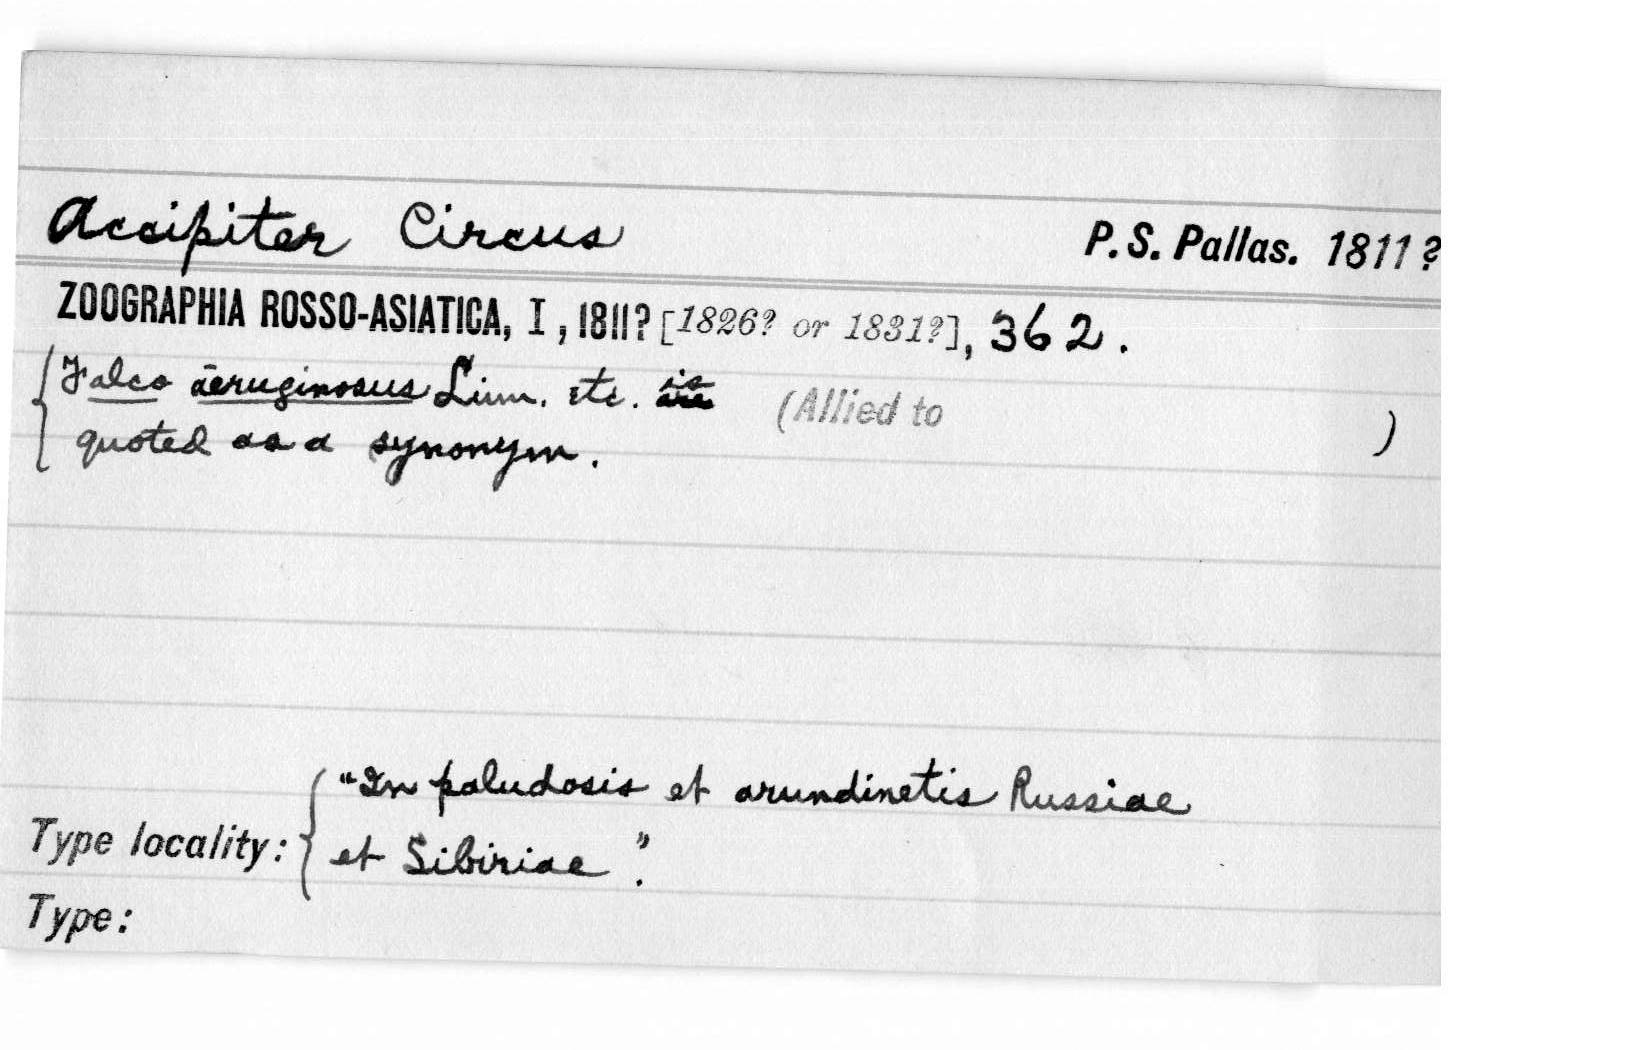 Accipiter Circus P. S. Pallas. 1811?
ZOOGRAPHIA ROSSO-ASIATICA, I, 1811? [1826? or 1831?], 362.
Falco aeruginosus Linn. etc. is are (Allied to )
quoted as a synonym.
"In paludosis et arundinetis Russiae
Type locality: et Sibiriae".
Type: